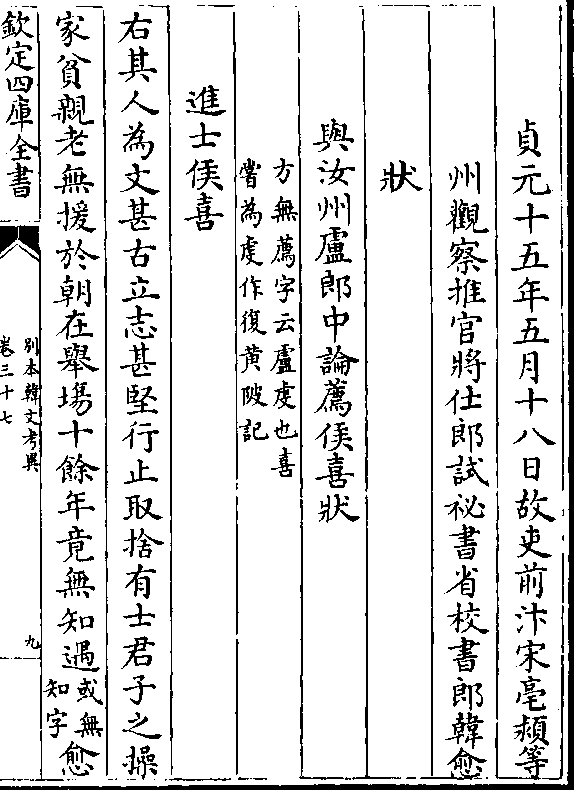 貞元十五年五月十八日故吏前汴宋亳潁等
州觀察推官將仕郎試祕書省校書郎韓愈
狀
與汝州盧郎中論薦侯喜狀
方無薦字云盧虔也喜
嘗為虔作復黄陂記
進士侯喜
右其人為文甚古立志甚堅行止取捨有士君子之操
家貧親老無援於朝在舉塲十餘年竟無知遇或無知字愈
欽定四庫全書
别本韓文考異
卷三十七
九